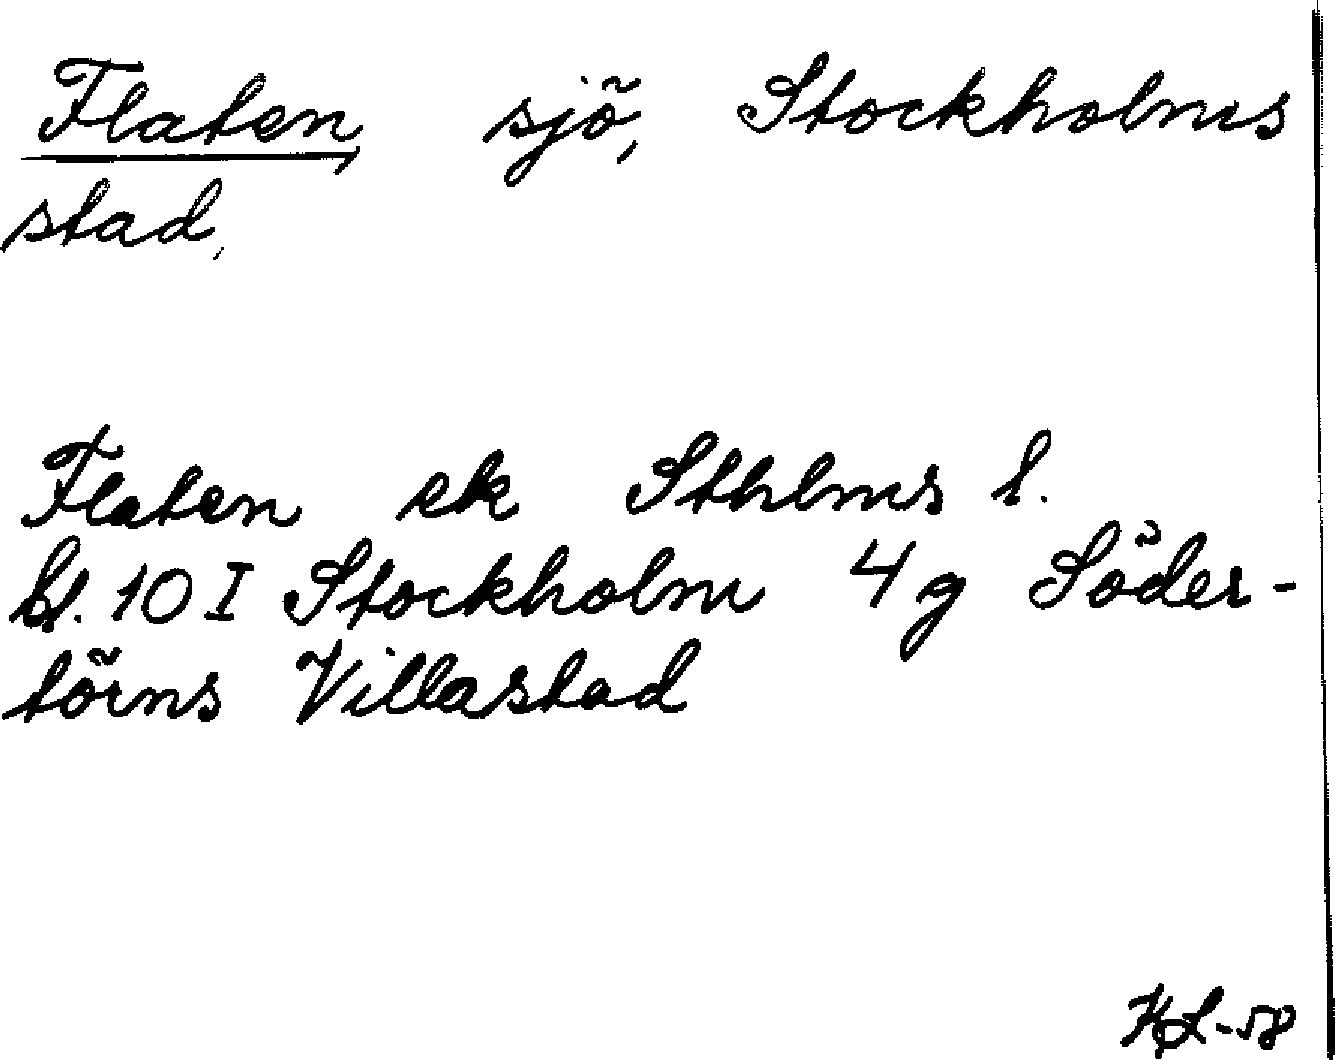 Flaten, sjö, Stockholms
stad,
Flaten ek Sthlms l.
bl. 10 I Stockholm 4 g Söder-
törns Villastad
KL-58